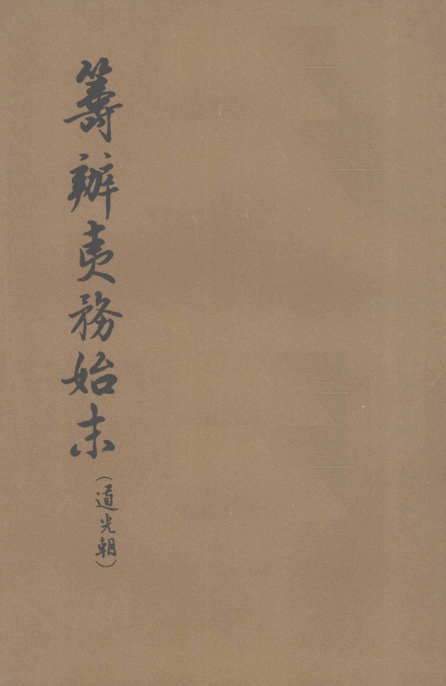 籌辦夷務始末
(道光朝)